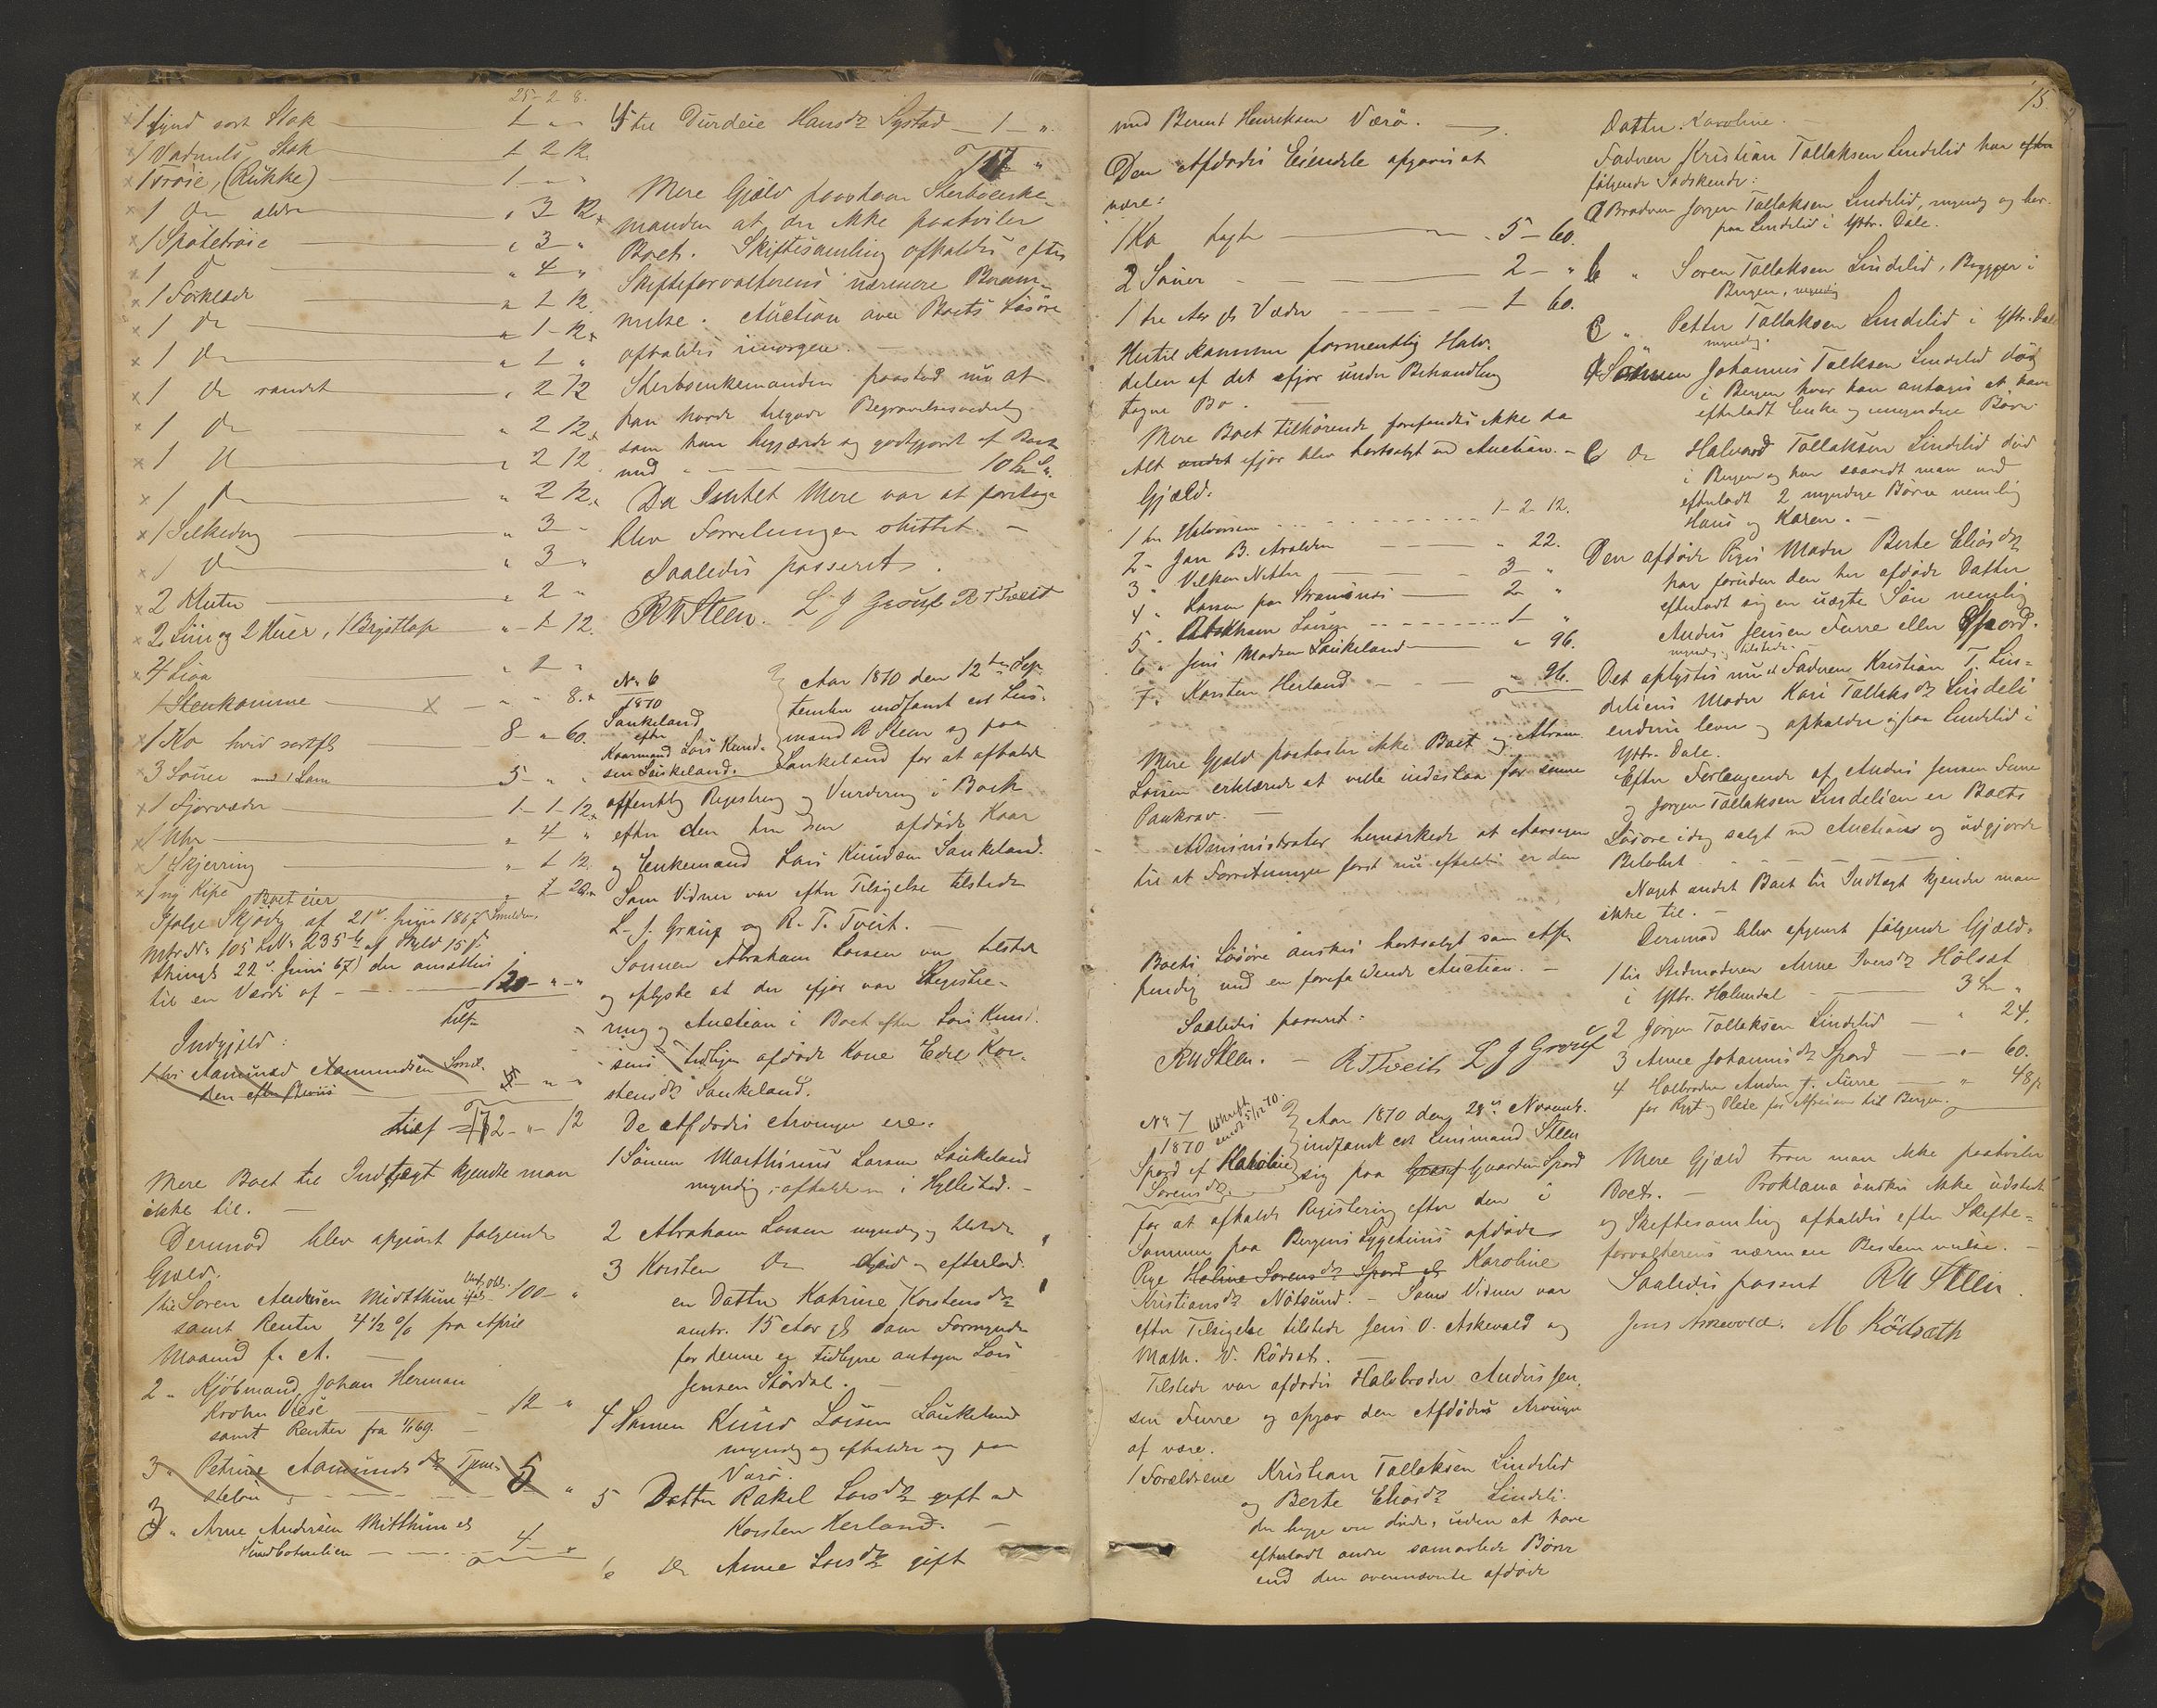 25-2-8.
1 Synd sort Stak — 1 - -
1 Vadmels Stak — 1 2 12.
1 Trøie, (Rukke) — 1 - "
1 Do ældre — " 3 12.
1 Spøletrøie — " 3 "
1 D — " 4 "
1 Forklæde — " 1 12.
1 Do — " 1 - 12.
1 Do — " 1 "
1 Do randet — " 2 12
1 Do — " 2 12.
1 D — " 2 12.
1 Do — " 2 12.
1 Silkedug — " 3 -
1 Do — " 3 "
2 Kluter — " 2 "
2 Liin og 2 Huer, 1 Brystlap — " 1 12.
4 — " 2 "
1 Steenkanne — " - 8.
1 Ko hvid sortfl — 8 - " 60.
3 Souer med 1 Lam — 5 - " "
1 Fjorvæder — 1 - 1 - 12.
1 Uhr — " 4 - "
1 Skjerring — " 1 12.
1 ny Kipe — " 1 20.
Boet eier
Ifølge Skjøde af 21de Juni 1867
Mtr. No 105 LNo 235 b af Skyld 15 s.
thingl. 22de Juni 67) der ansættes
til en Værdi af — 120 - " - "
Indgjæld:
1 hos Aamund Aamundsen
5 - " - "
172 - " - 12
Mere Boet til Indtægt kjendte man
ikke til. —
Derimod blev opgivet følgende
Gjæld.
1 til Søren Andersen Midtthun 100 - "
samt Renter 4 1/2 % fra April
Maaned f. A. —
2 " Kjøbmand Johan Herman
Krohn Wiese — 12 "
samt Renter fra 1/1 69.
3 " Petrine Aamundsdr Tjøm-
5 "
3 " Arne Andersen Midtthun el
Sundbotnlien — 4 - "
5 til Durdeie Hansdr Systad — 1 - "
Mere Gjæld paastaar Sterboenke-
manden at der ikke paahviler
Boet. Skiftesamling afholdes efter
Skifteforvalterens nærmere Beram-
melse. Auction over Boets Løsøre
afholdes imorgen. —
Sterboenkemanden paastod nu at
han havde tilgode Begravelsesudlæg
som han begjærede sig godtgjort af Boet
med — 10 Spd.
Da Intet Mere var at foretage
blev Forretningen sluttet. —
Saaledes passeret.
R W Steen. L J Grøup R T Tveit
No 6
1870
Laukeland
efter
Kaarmand Lars Knud-
sen Laukeland.
Aar 1870 den 12te Sep
tember indfandt est Lens-
mand R Steen sig paa
Laukeland for at afholde
offentlig Registrering og Vurdering i Boet
efter den her den afdøde Kaar
og Enkemand Lars Knudsen Laukeland.
Som Vidner var efter Tilsigelse tilstede
L. J. Grøup og R. T. Tveit. —
Sønnen Abraham Larsen var tilstede
og oplyste at der ifjor var Registre-
ring og Auction i Boet efter Lars Knud
sens tidligere afdøde Kone Edel Kor-
stensdr Laukeland.
De Afdødes Arvinger ere:
1 Sønnen Marthinus Larsen Laukeland
myndig, opholder i Hyllestad. —
2 Abraham Larsen myndig, tilstede
3 Korsten Do død og efterlod
en Datter Katrine Korstensdr
omtr. 15 Aar gl som Formynder
for denne er tidligere antagen Lars
Jensen Størdal. —
4 Sønnen Knud Larsen Laukeland
myndig og opholder sig paa
Værø.
5 Datter Rakel Larsdr gift med
Korsten Herland. —
6 Do Anne Larsdr gift
15.
med Bernt Henriksen Værø. —
Den Afdødes Eiendele opgaves at
være:
1 Ko — 5 - 60.
2 Souer — 2 - "
1 tre Aar gl Væder — 1 60.
Hertil kommer formentlig Halv-
delen af det ifjor under Behandling
tagne Bo. —
Mere Boet tilhørende forefandtes ikke da
Alt andet ifjor blev bortsolgt ved Auction. —
Gjæld:
1 til Halvorsen — 1 - 2 - 12.
2 - Jan B. Aralden — " 22.
3 " — 3 "
4 " Larsen paa Strømsnes — 2 "
5 " Abraham Larsen — 1 "
6 " Jens Madsen Laukeland — " 96.
7. Karsten Herland — " 96.
Mere Gjæld paahviler ikke Boet og Abram
Larsen erklærede at ville indestaa for samme
Paakrav. —
Administrator bemærkede at Aarsagen
til at Forretningen først nu afholdes er den
Boets Løsøre ønskes bortsolgt som
med en forefaldende Auction. —
Saaledes passeret.
R W Steen. — R T Tveit L J Grøup
No 7
1870
Spord af Haraline
Sørensdr
Aar 1870 den 28de Novembr.
indfandt est Lensmand Steen
sig paa Gaarden Spord
for at afholde Registering efter den i
Sommer paa Bergens Sygehuus afdøde
Pige Haline Sørensdr Spord el Karoline
Kristiansdr Nøtsund. — Som Vidner var
efter Tilsigelse tilstede Jens O. Askevold og
Math. N. Rødset. —
Tilstede var afdødes Halvbroder Anders Jen-
sen Furre og opgav den Afdødes Arvinger
at være.
1 Forældrene Kristian Tollaksen Lindelid
og Berte Eliasdr Lindeli.
der begge ere døde, uden at have
efterladt andre samavlede Børn
end den ovennævnte afdøde
Datter Karoline.
Faderen Kristian Tollaksen Lindelid har efter
følgende Sødskende:
a Broderen Jørgen Tollaksen Lindelid, myndig og bor.
paa Lindelid i Yttr. Dale.
b " Søren Tollaksen Lindelid, Brygger i
Bergen, myndig
c " Petter Tollaksen Lindelid i Yttr. Dale
myndig.
d Johannes Tolksen Lindelid død
i Bergen hvor han antages at have
efterladt Enke og umyndige Børn.
e Do Halvord Tollaksen Lindelid død
i Bergen og har saavidt man ved
efterladt 2 myndige Børn nemlig
Hans og Karen. —
Den afdøde Piges Moder Berte Eliasdr
har foruden den her afdøde Datter
efterladt sig en uægte Søn nemlig
Anders Jensen Furre eller Spord.
myndig, tilstede. —
Det oplystes nu at Faderen Kristian T. Lin-
deliens Moder Kari Tollaksdr Lindeli
endnu lever og opholder sig paa Lindelid i
Yttr. Dale.
Efter Forlangende af Anders Jensen Furre
og Jørgen Tollaksen Lindelien er Boets
Løsøre idag solgt ved Auction og udgjorde
Beløbet. — — —
Noget andet Boet til Indtægt kjender man
ikke til. —
Derimod blev opgivet følgende Gjæld.
1 til Stedmoderen Anne Iversdr Hølsæt
i Yttr. Holmedal — 3 Spd "
2 Jørgen Tollaksen Lindelid — " 24.
3 Anne Johannesdr Spord — " 60.
4 Halbroder Anders J. Furre — " 48 s
for Røgt og Pleie før Afreisen til Bergen.
Mere Gjæld troer man ikke paahviler
Boet. — Proklama ønskes ikke udstedt
og Skiftesamling afholdes efter Skifte-
forvalterens nærmere Bestemmelse. —
Saaledes passeret R W Steen.
Jens Askevold. M Rødsæth